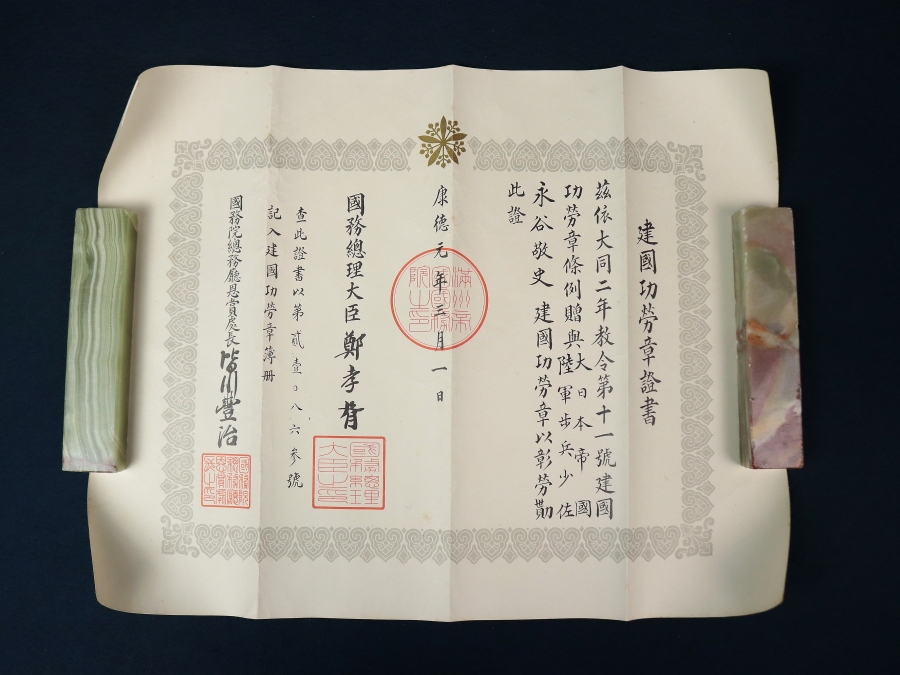 建國功勞章證書
茲依大同二年教令第十一號建國
功勞章條例贈與大日本帝國陸軍步兵少佐
永谷敬史建國功勞章以彰勞勩
此證
康德元年三月一日
滿洲帝國國務院之印
國務總理大臣鄭孝胥
國務總理大臣之印
查此證書以第貳壹〇八六參號
記入建國功勞章簿冊
國務院總務廳恩賞處長皆川豐治